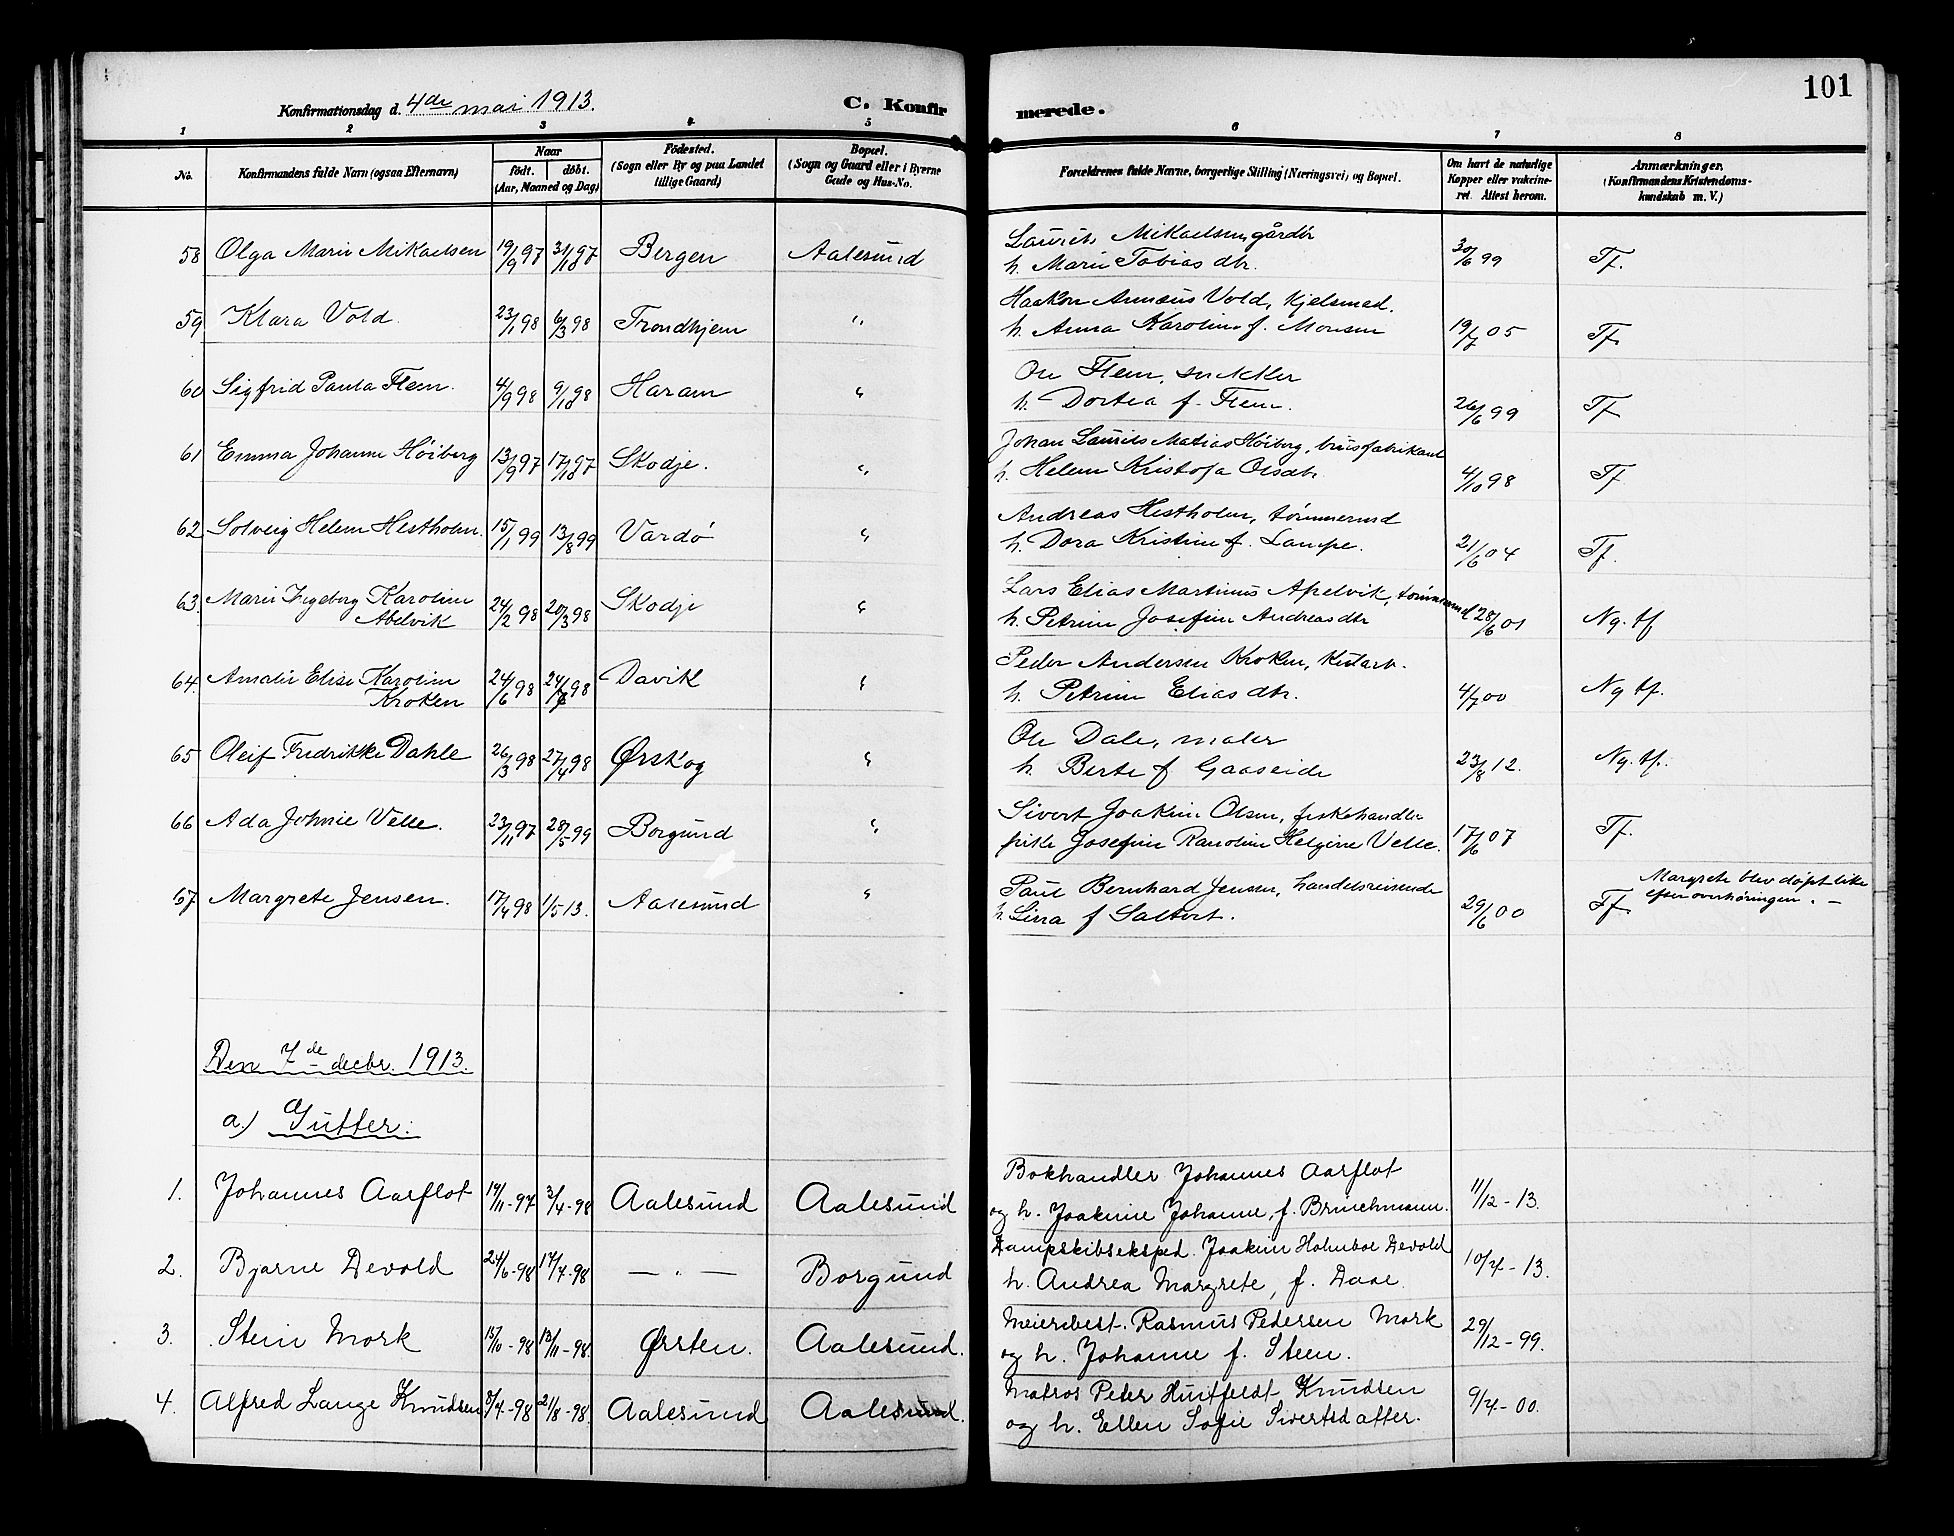 101
Konfirmationsdag d. 4de mai 1913.
C. Konfirmerede.
1 2 3 4 5 6 7 8
No. Konfirmandens fulde Navn (ogsaa Efternavn) Naar født. døbt. (Aar, Maaned og Dag) Fødested. (Sogn eller By og paa Landet tillige Gaard) Bopæl. (Sogn og Gaard eller i Byerne Gade og Hus-No.) Forældrenes fulde Navne, borgerlige Stilling (Næringsvei) og Bopæl. Om havt de naturlige Kopper eller vakcineret. Attest herom. Anmærkninger. (Konfirmandens Kristendomskundskab m. V.)
58 Olga Marie Mikaelsen 19/9 97 31/10 97 Bergen Aalesund Laurits Mikaelsen, gårdbr 30/6 99 Tf.
h. Marie Tobias dtr.
59 Klara Vold. 23/1 98 6/3 98 Trondhjem " Haakon Annæus Vold, Kjelsmed. 19/7 05 Tf.
h. Anna Karoline f. Monsen
60 Sigfrid Paula Flem. 4/9 98 9/10 98 Haram " Ole Flem, snekker 26/6 99 Tf
h. Dortea f. Flem.
61 Emma Johanne Høiberg 13/9 97 17/10 97 Skodje. " Johan Laurits Matias Høiberg, brusfabrikant 4/10 98 Tf
h. Helene Kristofa Olsdtr.
62 Solveig Helene Hestholm. 15/1 99 13/8 99 Vardö " Andreas Hestholm, tømmermd 21/6 04 Tf.
h. Dora Kristine f. Lampe.
63. Marie Ingeborg Karoline Abelvik 24/2 98 20/3 98 Skodje " Lars Elias Martinus Apelvik, tømmermd 28/6 01 Ng. tf
h. Petrine Josefine Andreasdtr
64. Amalie Elise Karoline Kroken 24/6 98 24/7 98 Davik " Peder Andersen Kroken, Kularb. 4/7 00 Ng tf.
h. Petrine Elias dtr.
65 Oleif Fredrikke Dahle 26/3 98 27/4 98 Ørskog " Ole Dale, maler 23/8 12. Ng. tf.
h. Berte f Gaaseide
66 Ada Johnie Velle. 23/11 97 28/5 99 Borgund " Sivert Joakim Olsen, fiskehandler 17/6 07 Tf.
pike Josefine Karoline Helgine Velle.
67. Margrete Jensen. 17/4 98 1/5 13. Aalesund " Paul Bernhard Jensen, handelsreisende 29/6 00 Tf. Margrete blev døpt like
h. Lina f Saltvet. efter overhøringen. —
Den 7de decbr. 1913.
a.) Gutter:
1. Johannes Aarflot 14/11-97 3/4-98 Aalesund Aalesund Bokhandler Johannes Aarflot 11/12-13.
og h. Joakime Johanne, f. Brinchmann.
2. Bjarne Devold 24/6-98 17/7-98 — " — Borgund Dampskibseksped. Joakim Holmboe Devold 10/4-13.
h. Andrea Margrete, f. Daae.
3. Stein Mork 15/10-98 13/11-98. Ørsten. Aalesund. Meieribest. Rasmus Pedersen Mork 29/12-99.
og h. Johanne f. Steen.
4. Alfred Lange Knudsen 8/4-98 21/8-98. Aalesund Aalesund. Matros Peter Huitfeldt Knudsen 9/4-00.
og h. Ellen Sofie Sivertsdatter.